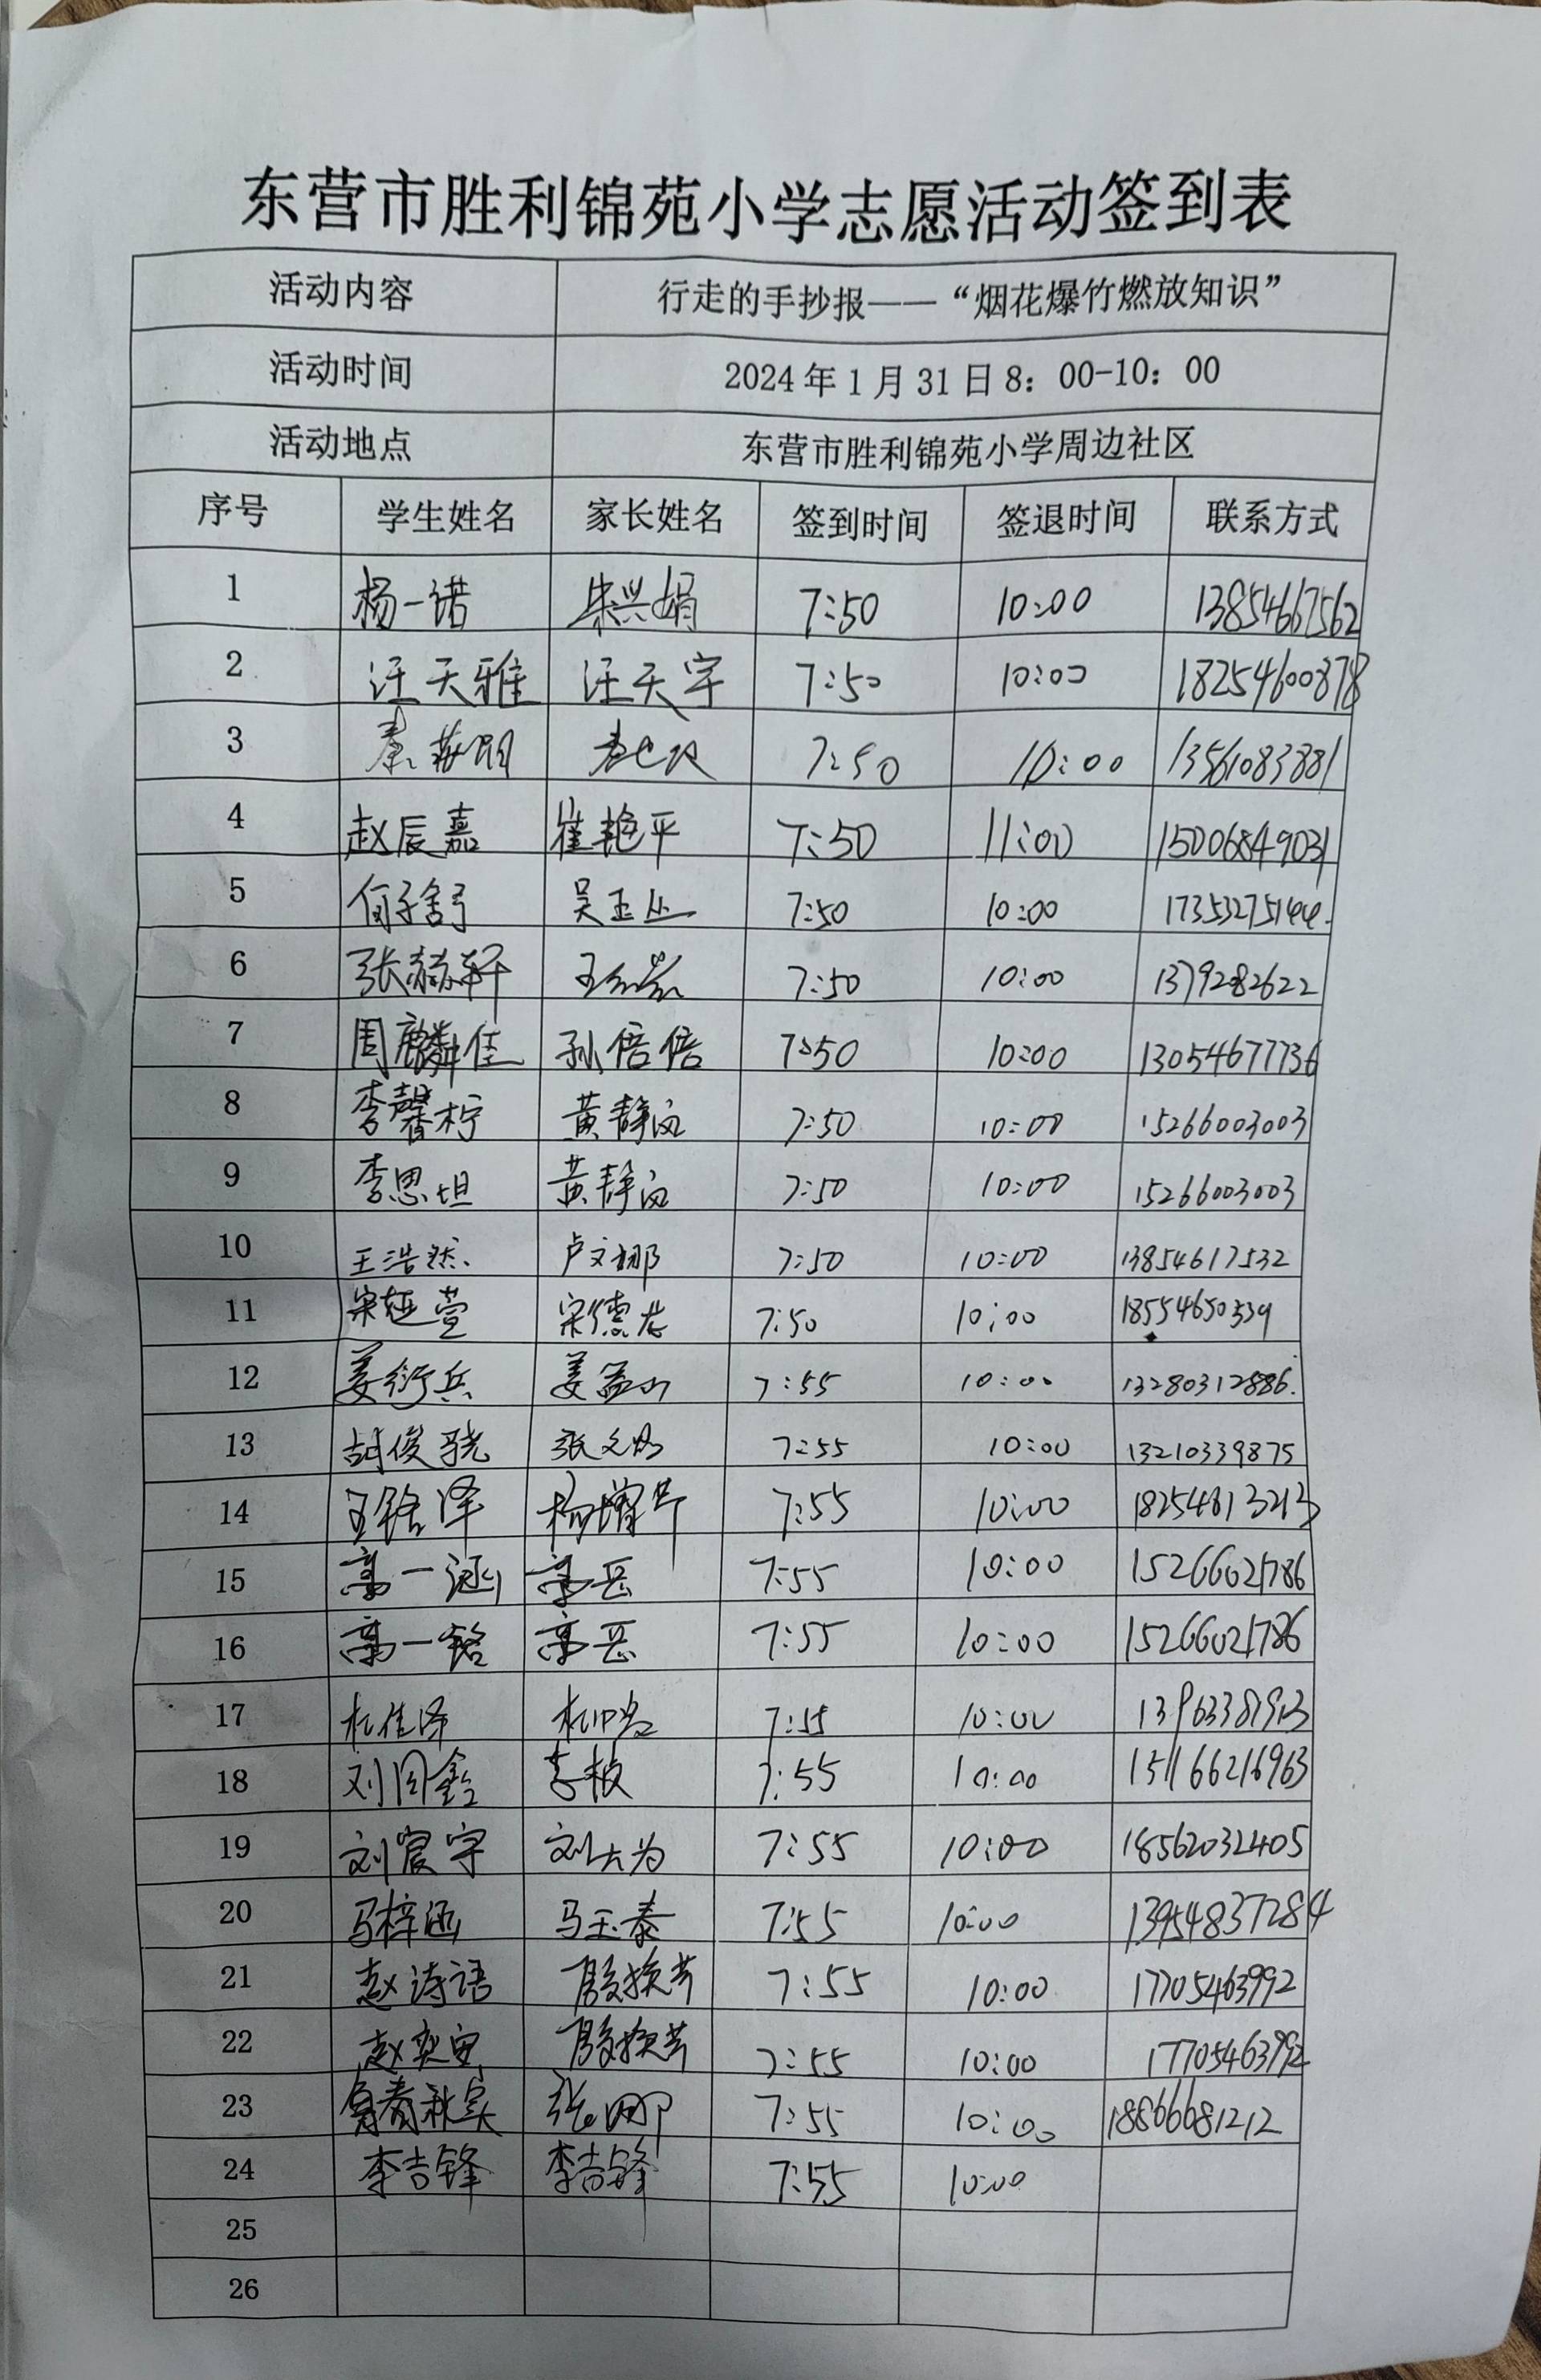 东营市胜利锦苑小学志愿活动签到表
活动内容 行走的手抄报——“烟花爆竹燃放知识”
活动时间 2024年1月31日8：00-10：00
活动地点 东营市胜利锦苑小学周边社区
序号 学生姓名 家长姓名 签到时间 签退时间 联系方式
1 杨一诺 朱兴娟 7:50 10:00 13854667562
2 汪天雅 汪天宇 7:50 10:00 18254600878
3 7:50 10:00 13561083881
4 赵辰嘉 崔艳平 7:50 11:00 15006849031
5 何子舒 吴玉丛 7:50 10:00 17353275144
6 张赫轩 7:50 10:00 1379282622
7 周麟佳 孙倍倍 7:50 10:00 13054677736
8 李馨柠 黄静 7:50 10:00 15266003003
9 李思坦 黄静 7:50 10:00 15266003003
10 王浩然 卢文娜 7:50 10:00 13854617532
11 宋娅萱 宋德龙 7:50 10:00 18554650339
12 姜衍兵 姜孟 7:55 10:00 13280312886
13 胡俊骁 张文 7:55 10:00 13210339875
14 王铭泽 杨增芹 7:55 10:00 18254813213
15 高一涵 高岳 7:55 10:00 15266021786
16 高一铭 高岳 7:55 10:00 15266021786
17 杜佳泽 7:55 10:00
18 刘同鑫 李敏 7:55 10:00 15166216963
19 刘宸宇 刘大为 7:55 10:00 18562032405
20 马梓涵 马玉泰 7:55 10:00 13954837284
21 赵诗语 殷换芹 7:55 10:00 17705463992
22 赵奕安 殷换芹 7:55 10:00 17705463992
23 张娜 7:55 10:00 18866681212
24 李吉锋 李吉锋 7:55 10:00
25
26